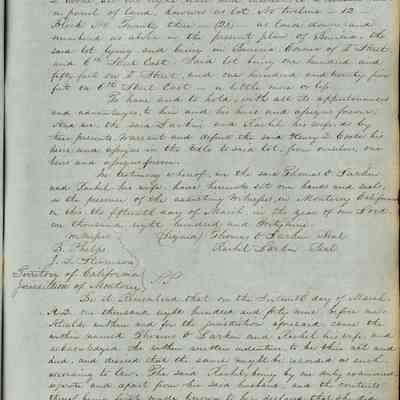 a parcel of land, known as Lot No twelve — 12 —
Block No Twenty three (23) — as laid down and
numbered as above in the present plan of Benicia, the
said lot lying and being in Benicia Corner of D Street
and 6th Street East. Said lot being one hundred and
fifty feet on D Street, and one hundred and twenty five
feet on 6th Street East — a little more or less
To have and to hold, with all its appurtenances
and advantages, to him and his heirs and assigns forever,
And we the said Larkin and Rachel his wife do by
these presents, warrant and defend the said Henry his
heirs and assigns in the title to said lot, from ourselves, our
heirs and assigns forever.
In testimony whereof, we the said Thomas O Larkin
and Rachel his wife, have hereunto set our hands and seals,
in the presence of the assisting Witnesses, in Monterey California
on this, the fifteenth day of March, in the year of our Lord
one thousand eight hundred and forty nine.
Witness (Signed) Thomas O Larkin Seal
B. Phelps Rachel Larkin Seal
J. S.
Territory of California
Jurisdiction of Monterey
Be it Remembered that on the Sixteenth day of March
A.D. one thousand eight hundred and forty nine before me
Alcalde within and for the jurisdiction aforesaid came the
within named Thomas O Larkin and Rachel his wife, and
acknowledged the within written indenture to be their act and
deed, and desired that the same might be recorded as such
according to law. The said Rachel, being by me duly examined
separate and apart from her said husband, and the contents
thereof being first made known to her declared that she did